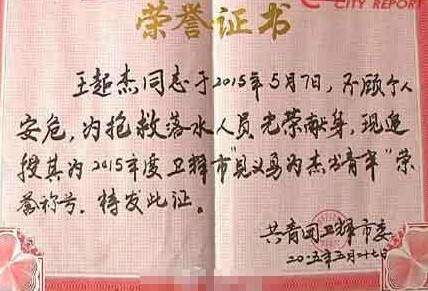 CITY REPORT
荣誉证书
王超杰同志于2015年5月7日，不顾个人
安危，为抢救落水人员光荣献身，现追
授其为2015年度卫辉市"见义勇为杰出青年"荣
誉称号。特发此证。
共青团卫辉市委
二〇一五年五月二十七日